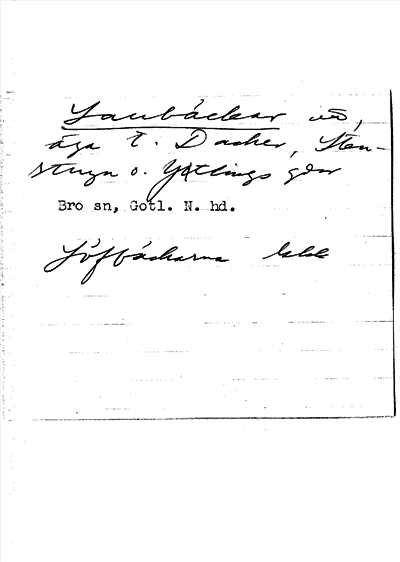 Laubäckar
äga t. Dacker, Sten-
stugu o. Yttlings gdar
Bro sn, Gotl. N. hd.
Löfbäckarna